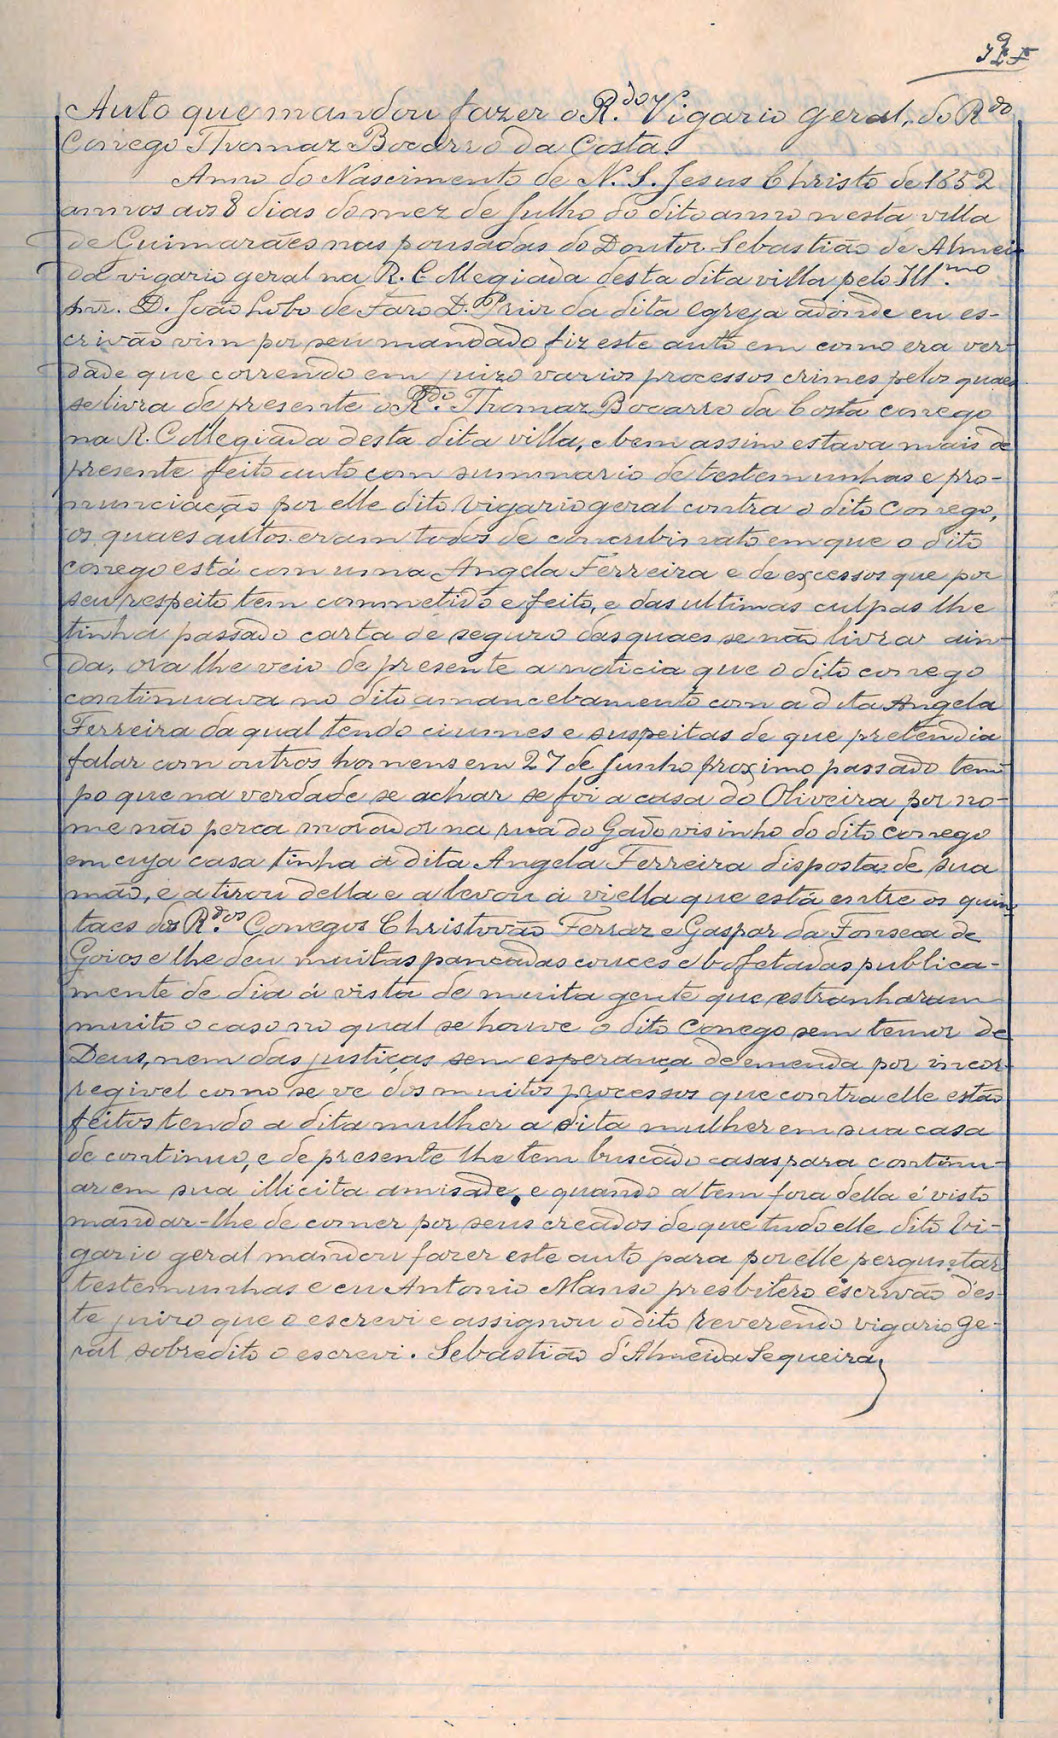 Auto que mandou fazer o R.do Vigario geral, do R.do
Conego Thomaz Bocarro da Costa.
Anno do Nascimento de N. S. Jesus Christo de 1652
annos aos 8 dias do mez de Julho do dito anno nesta villa
de Guimarães nas pousadas do Doutor Sebastião de Almei-
da vigario geral na R. Collegiada desta dita villa pelo Ill.mo
snr. D. João Lobo de Faro D. Prior da dita egreja adonde eu es-
crivão vim por seu mandado fiz este auto em como era ver-
dade que correndo em juizo varios processos crimes pelos quaes
se livra de presente o R.do Thomaz Bocarro da Costa conego
na R. Collegiada desta dita villa, e bem assim estava mais de
presente feito auto com summario de testemunhas e pro-
nunciação por elle dito Vigario geral contra o dito Conego,
os quaes autos eram todos de concubinato em que o dito
conego está com uma Angela Ferreira e de excessos que por
seu respeito tem commetido e feito, e das ultimas culpas lhe
tinha passado carta de seguro das quaes se não livrar ain-
da, ora lhe veio de presente a noticia que o dito conego
continuava no dito amancebamento com a dita Angela
Ferreira da qual tendo ciumes e suspeitas de que pretendia
falar com outros homens em 27 de Junho proximo passado tem-
po que na verdade se achar se foi a casa do Oliveira por no-
me não perca morador na rua do Gado visinho do dito conego
em cuja casa tinha a dita Angela Ferreira disposta de sua
mão, e a tirou della e a levou á viella que está entre os quin-
taes dos R.dos Conegos Christovão Ferraz e Gaspar da Fonseca de
Goios e lhe deu muitas pancadas couces e bofetadas publica-
mente de dia á vista de muita gente que estranharam
muito o caso no qual se houve o dito Conego sem temor de
Deus, nem das justiças sem esperança de emenda por incor-
regivel como se ve dos muitos processos que contra elle estão
feitos tendo a dita mulher a dita mulher em sua casa
de continuo, e de presente lhe tem buscado casas para continu-
ar em sua illicita amisade, e quando a tem fora della é visto
mandar-lhe de comer por seus creados de que tudo elle dito Vi-
gario geral mandou fazer este auto para por elle perguntar
testemunhas e eu Antonio Manso presbitero escrivão d'es-
te juizo que o escrevi e assignou o dito reverendo vigario ge-
ral sobredito o escrevi. Sebastião d'Almeida Sequeira